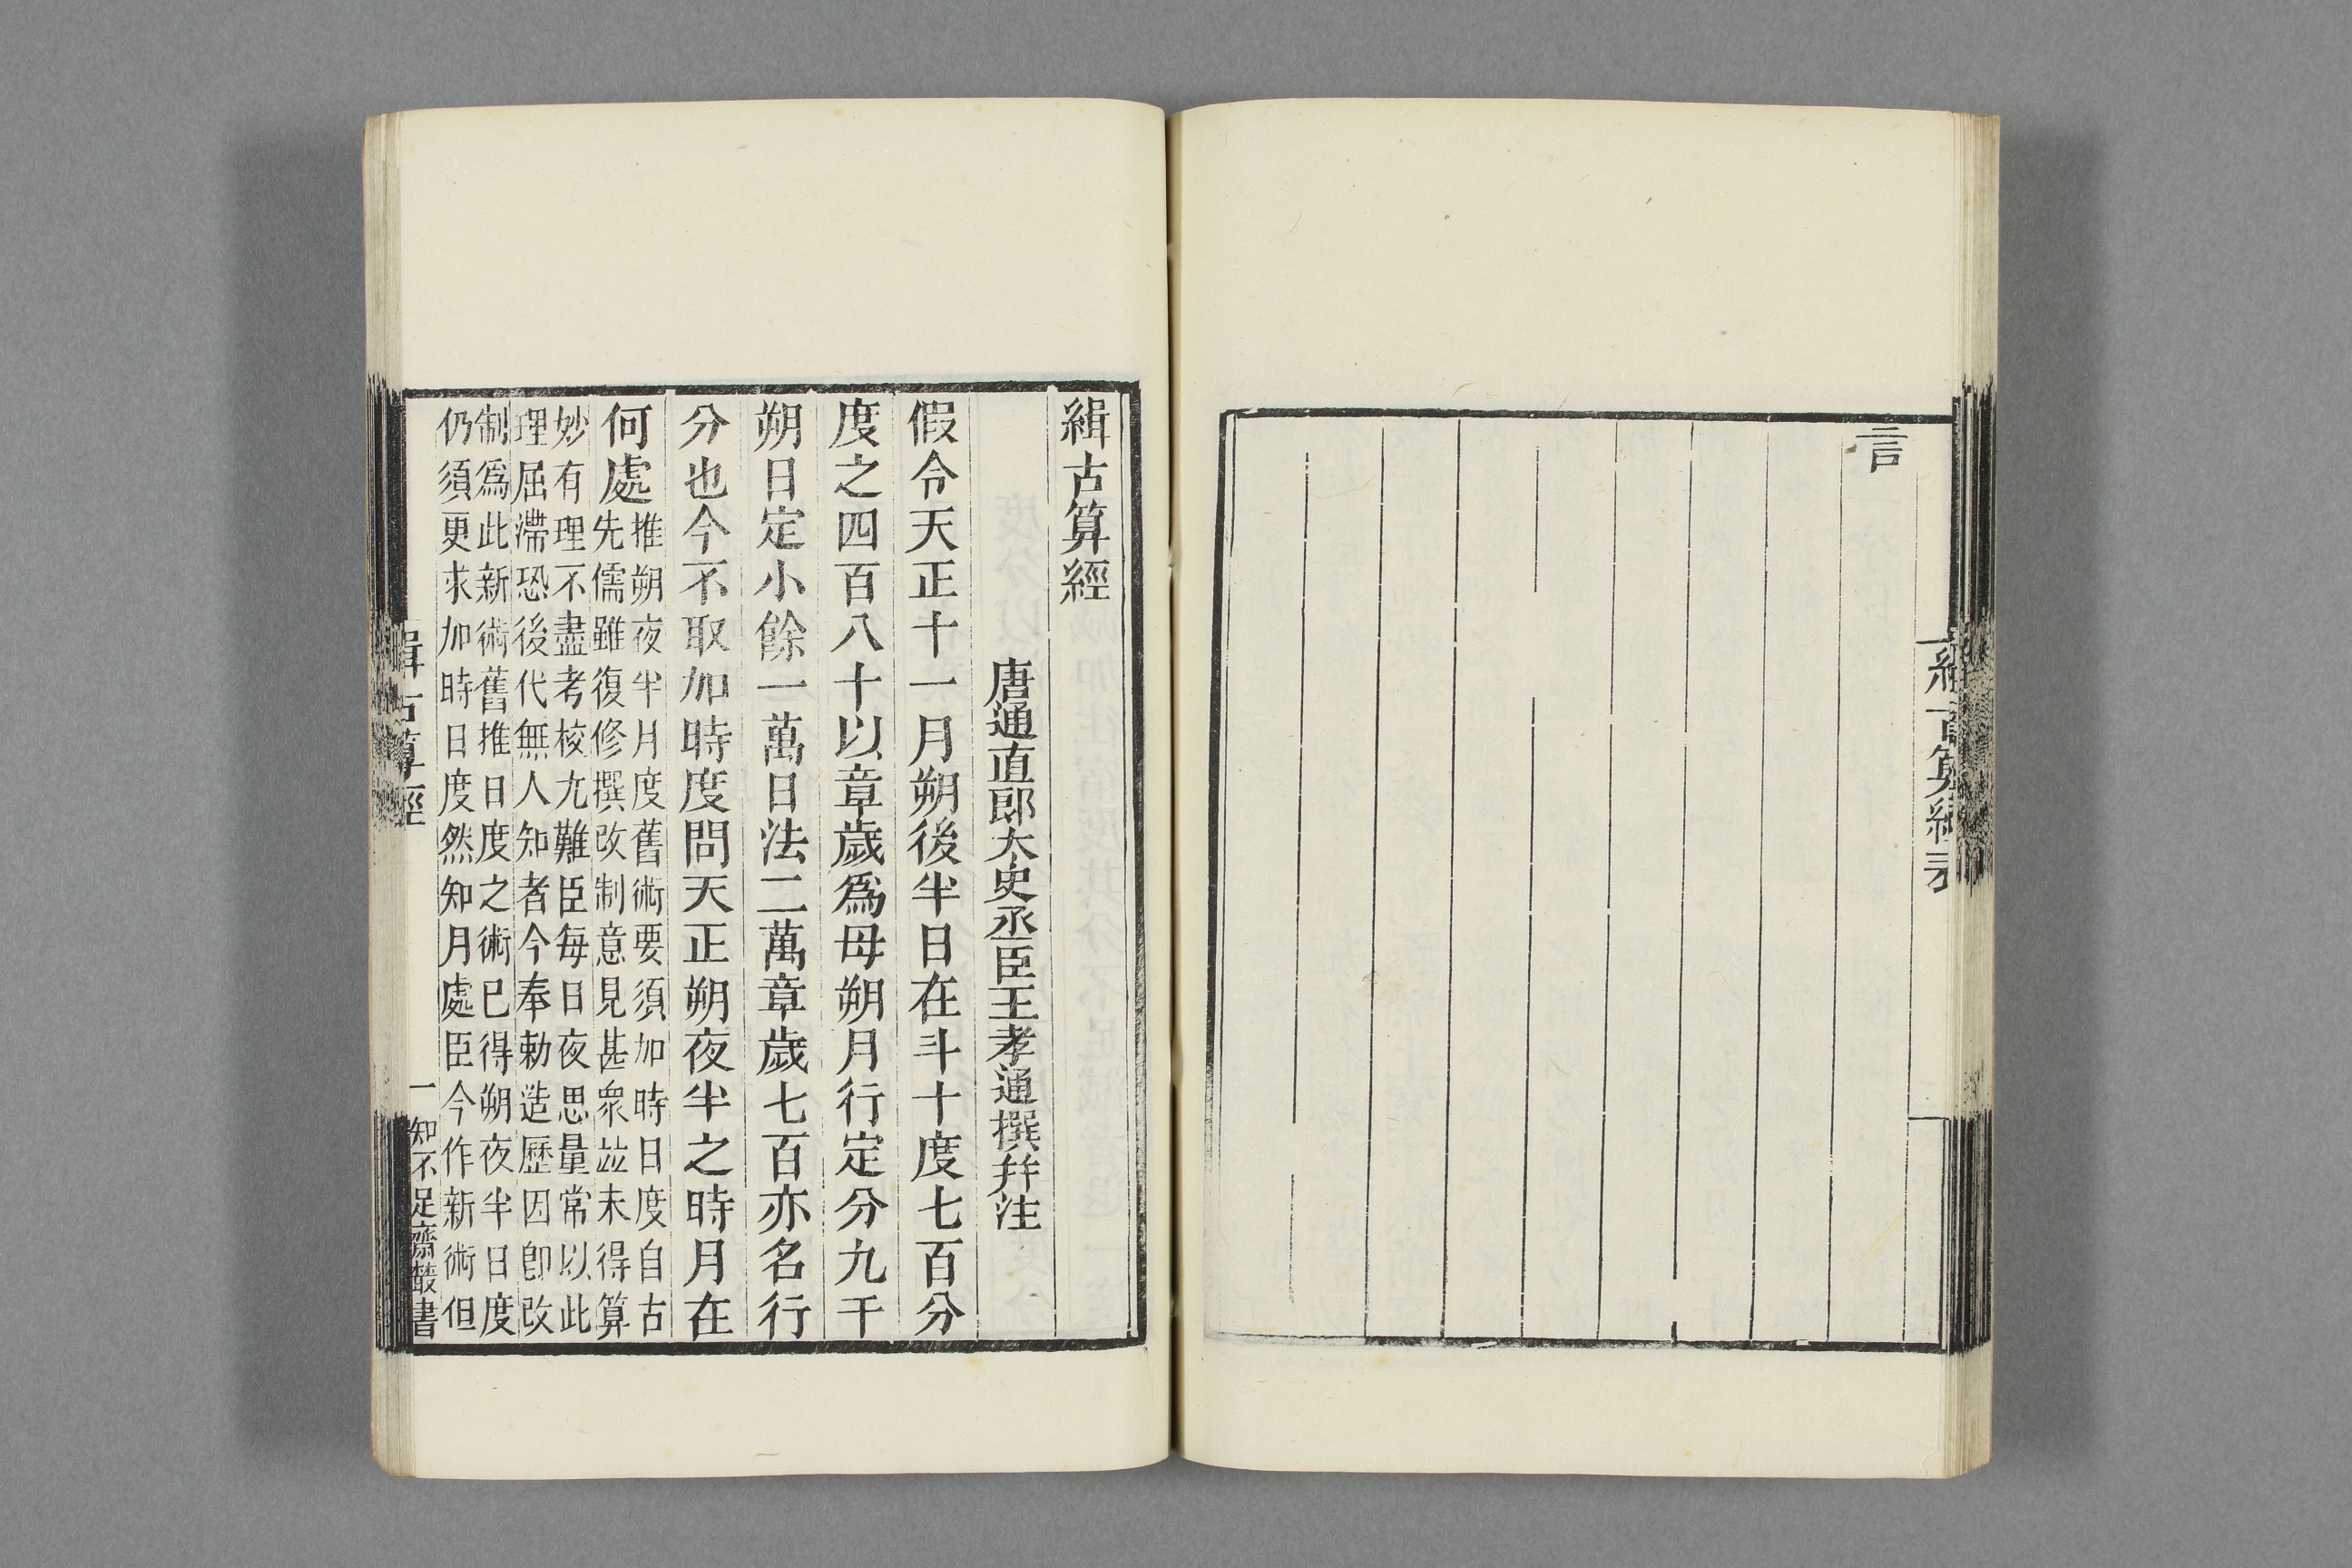 言
緝古算經
唐通直郎太史丞臣王孝通撰幷注
假令天正十一月朔後半日在斗十度七百分
度之四百八十以章歲爲母朔月行定分九千
朔日定小餘一萬日法二萬章歲七百亦名行
分也今不取加時度問天正朔夜半之時月在
何處
推朔夜半月度舊術要須加時日度自古
先儒雖復修撰改制意見甚衆並未得算
妙有理不盡考校尤難臣每日夜思量常以此
理屈滯恐後代無人知者今奉勅造歷因卽改
制爲此新術舊推日度之術已得朔夜半日度
仍須更求加時日度然知月處臣今作新術但
緝古算經
一
知不足齋叢書